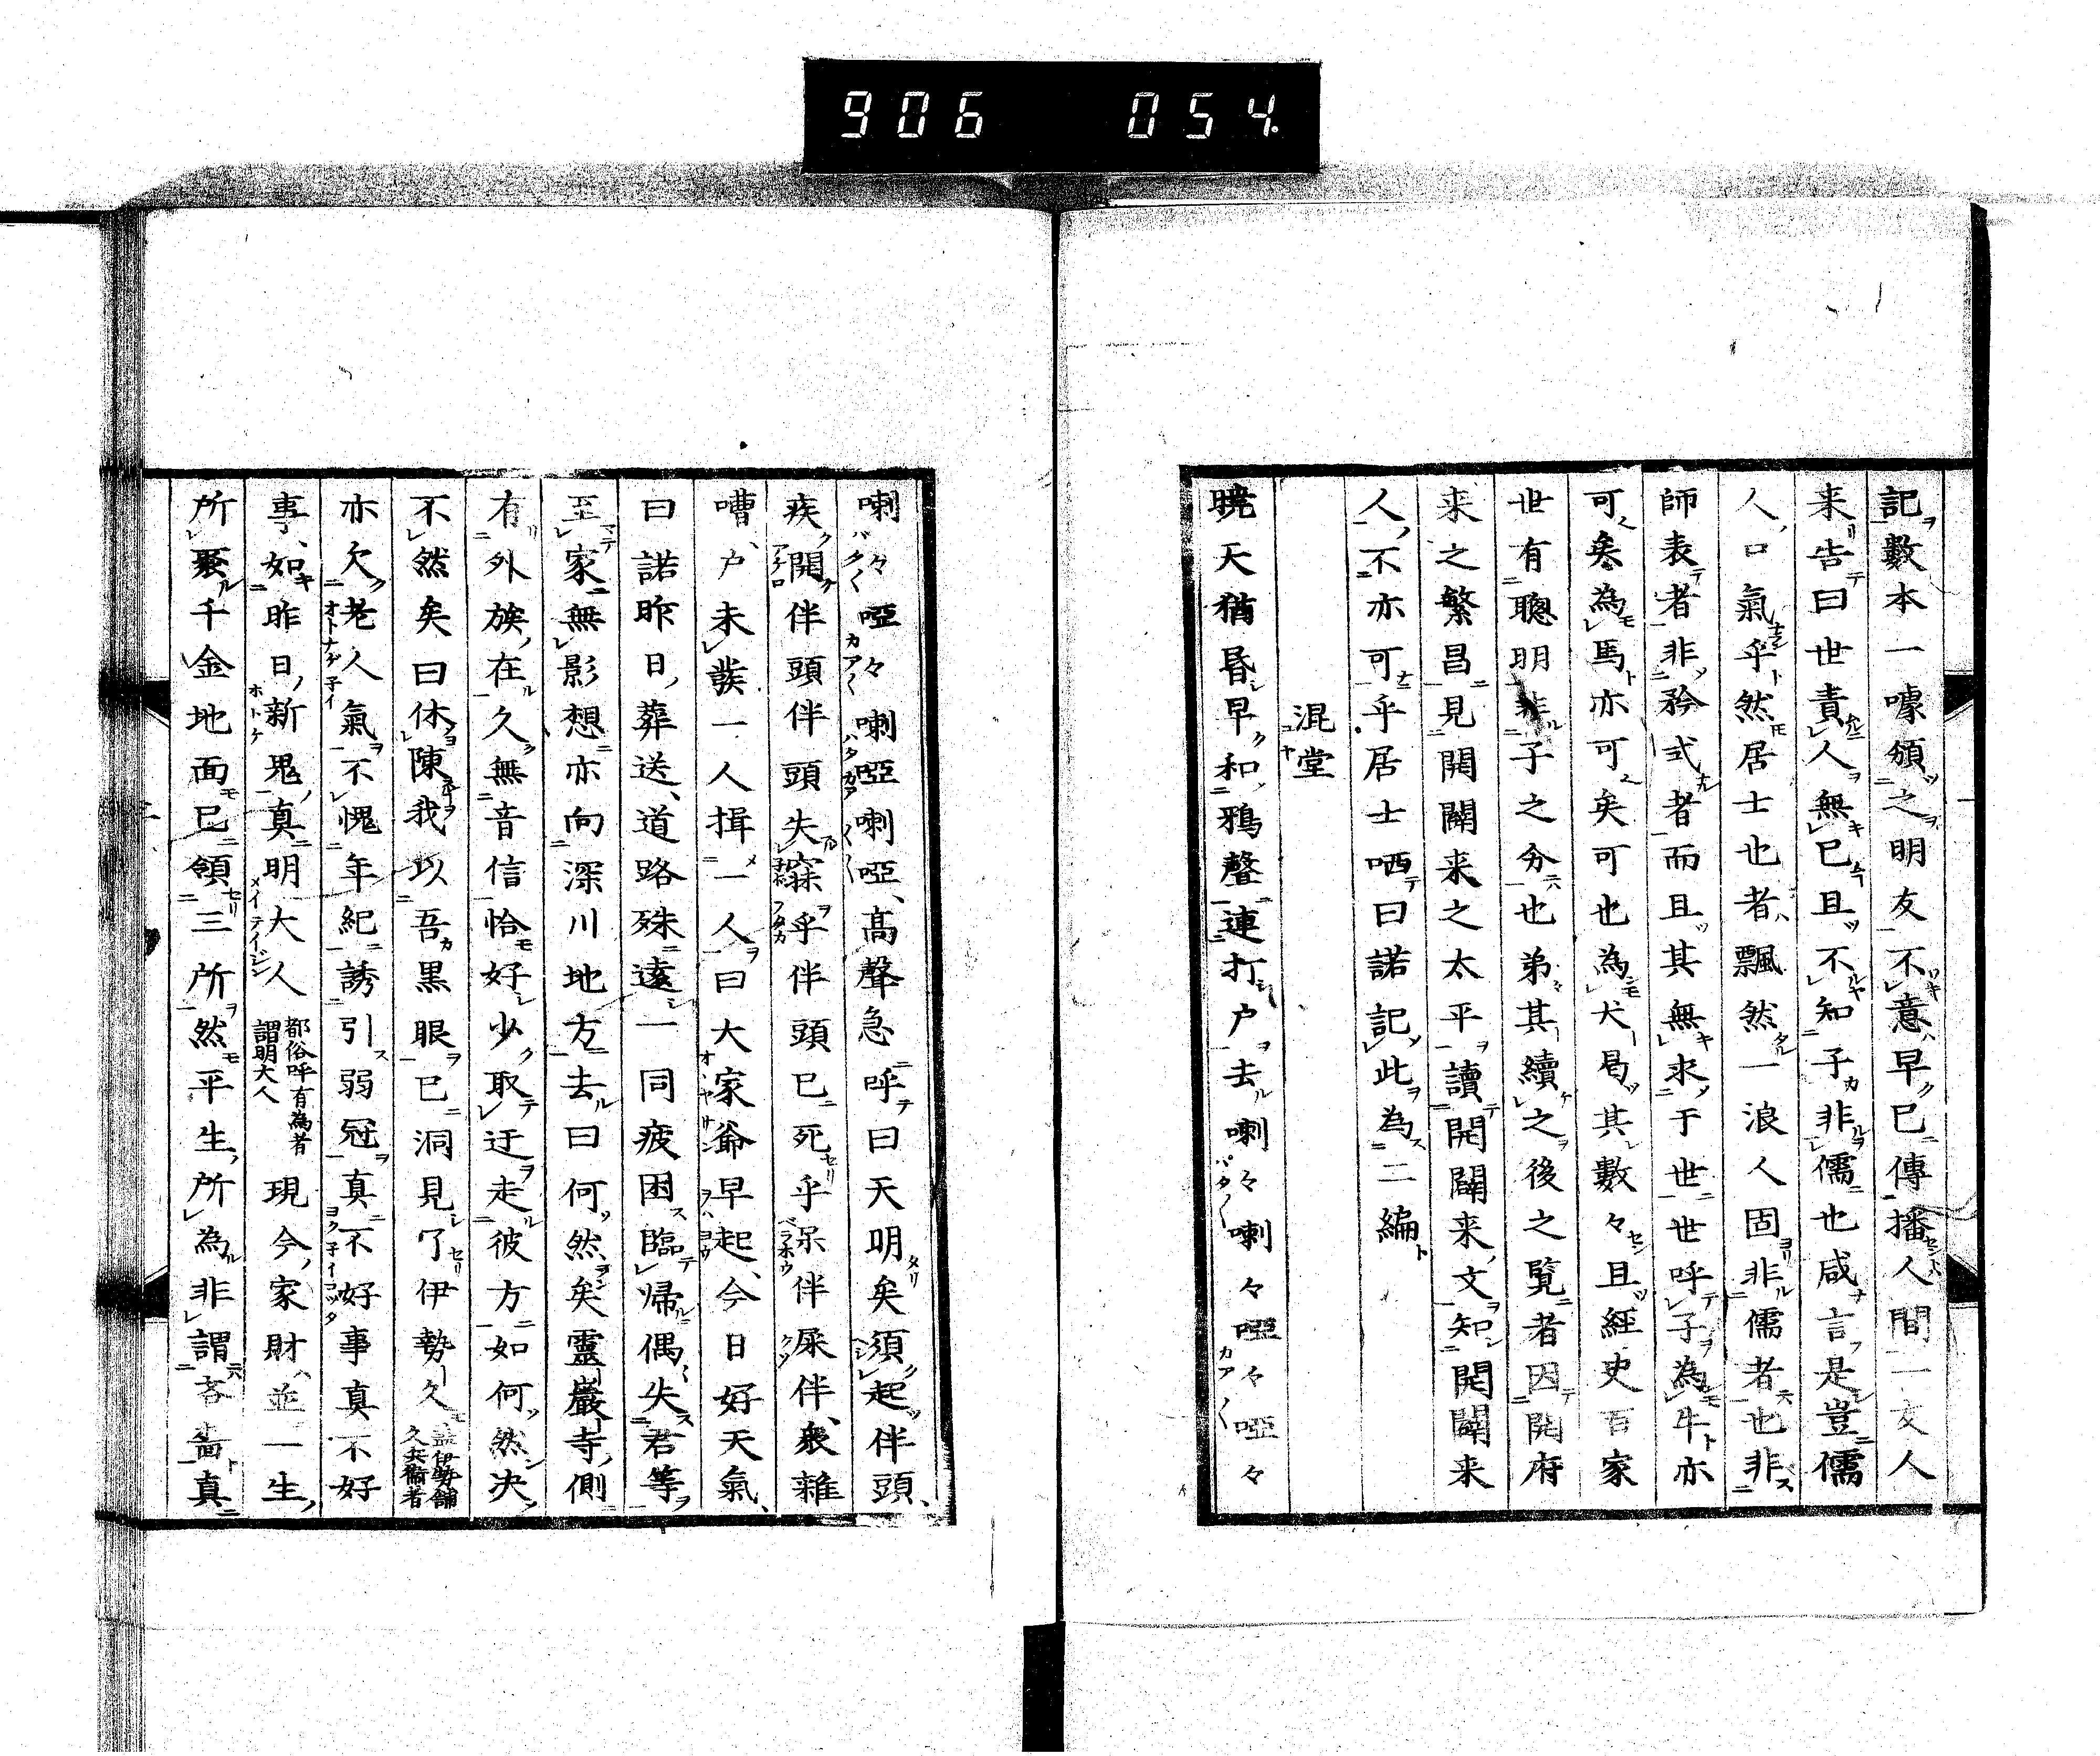 906 054.
記數本一噱頒之明友不意早已傳播人間一友人
来告曰世責人無已且不知子非儒也咸言是豈儒
人口氣乎然居士也者飄然一浪人固非儒者也非
師表者非矜式者而且其無求于世世呼子為牛亦
可矣為馬亦可矣可也為犬曷其數々且經史百家
世有聰明非子之分也弟其續之後之覽者因開府
来之繁昌見開闢来之太平讀開闢来文知開闢来
人不亦可乎居士哂曰諾記此為二編
混堂
曉天猶昏早和鴉聲連打户去喇々喇々啞々啞々
喇々啞々喇啞喇啞高聲急呼曰天明矣須起伴頭
疾開伴頭伴頭失寐乎伴頭已死乎呆伴屎伴衆雜
嘈户未發一人揖一人曰大家爺早起今日好天氣
曰諾昨日葬送道路殊遠一同疲困臨帰偶失君等
至家無影想亦向深川地方去曰何然矣靈巖寺側
有外族在久無音信恰好少取迂走彼方如何然决
不然矣曰休陳我以吾黒眼已洞見了伊勢久盖伊勢舗久兵衞者
亦欠老人氣不愧年紀誘引弱冠真不好事真不好
事如昨日新鬼真明大人都俗呼有為者謂明大人現今家財並一生
所聚千金地面已領三所然平生所為非謂吝嗇真